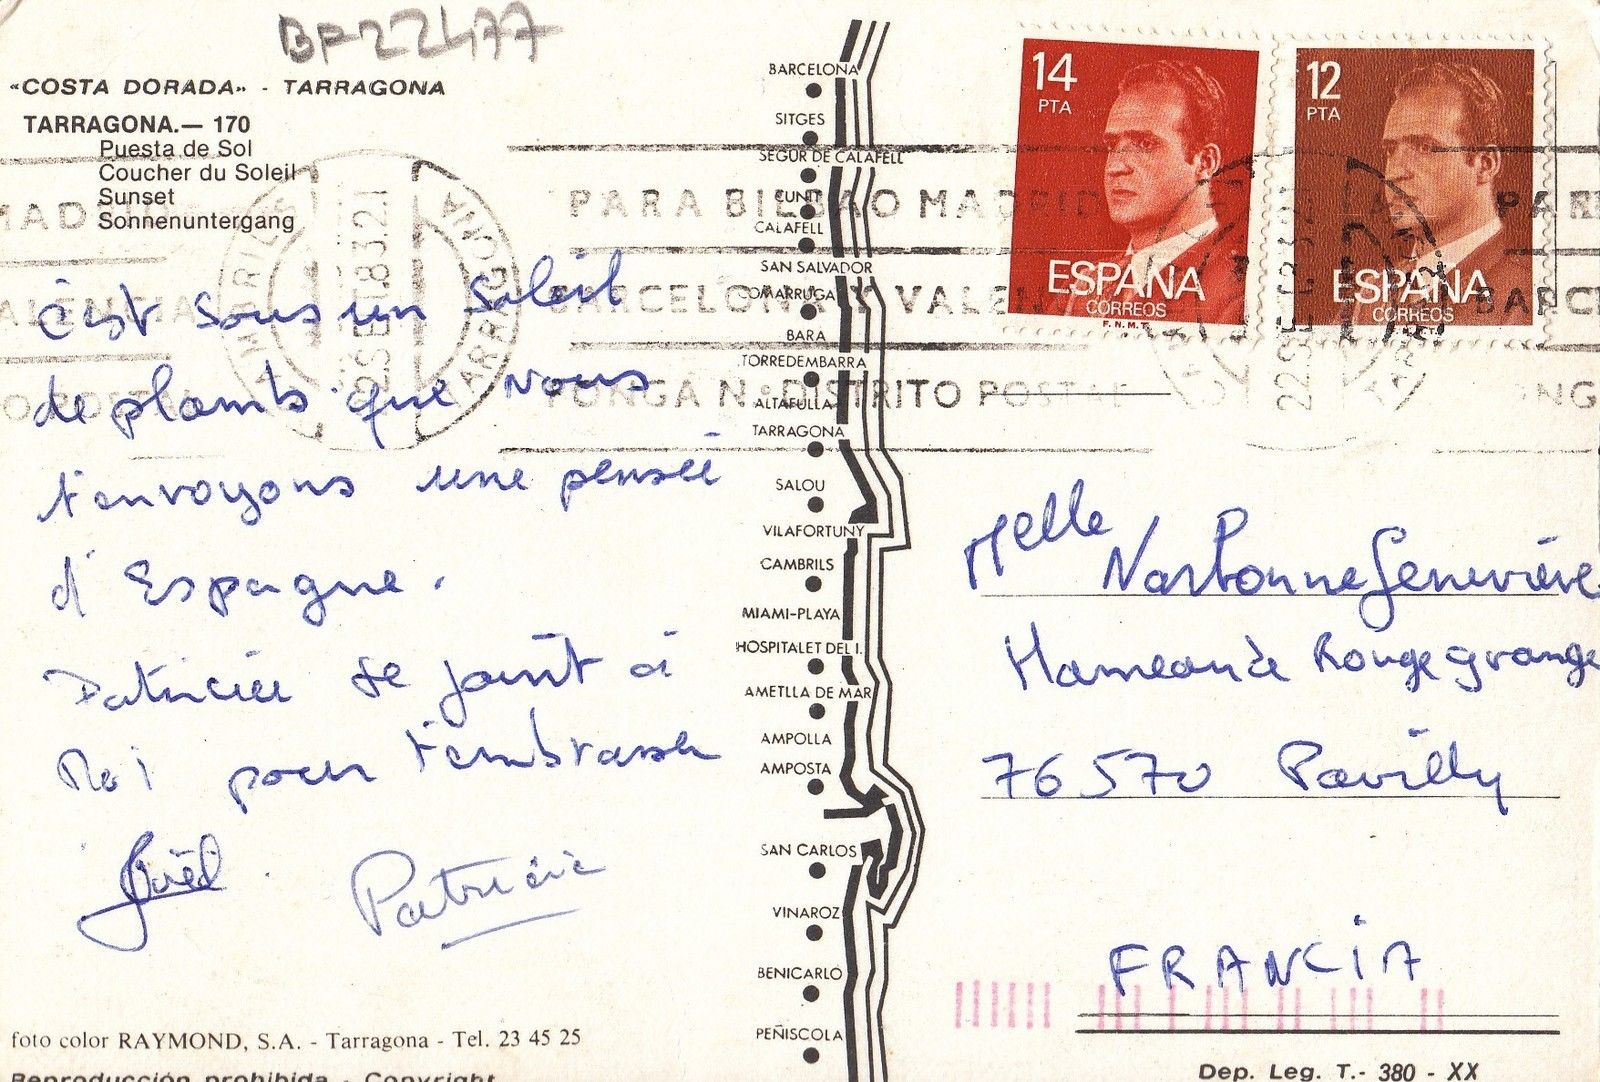 BP22477
«COSTA DORADA» - TARRAGONA
TARRAGONA.— 170
Puesta de Sol
Coucher du Soleil
Sunset
Sonnenuntergang
c'est sous un soleil
de plomb que nous
t'envoyons une pensée
d'Espagne.
Patricia se joint à
Moi pour t'embrasser
Joël
Patricia
foto color RAYMOND, S.A. - Tarragona - Tel. 23 45 25
Reproducción prohibida - Copyright
BARCELONA
SITGES
SEGUR DE CALAFELL
CUNIT
CALAFELL
SAN SALVADOR
COMARRUGA
BARA
TORREDEMBARRA
ALTAFULLA
TARRAGONA
SALOU
VILAFORTUNY
CAMBRILS
MIAMI-PLAYA
HOSPITALET DEL I.
AMETLLA DE MAR
AMPOLLA
AMPOSTA
SAN CARLOS
VINAROZ
BENICARLO
PEÑISCOLA
14
PTA
ESPAÑA
CORREOS
F.N.M.T.
12
PTA
ESPAÑA
CORREOS
F.N.M.T.
PARA BILBAO MADRID
BARCELONA Y VALENCIA
PONGA N.º DISTRITO POSTAL
TARRAGONA
Melle Narbonne Geneviève
Hameau de Rouge grange
76570 Pavilly
FRANCIA
Dep. Leg. T.- 380 - XX